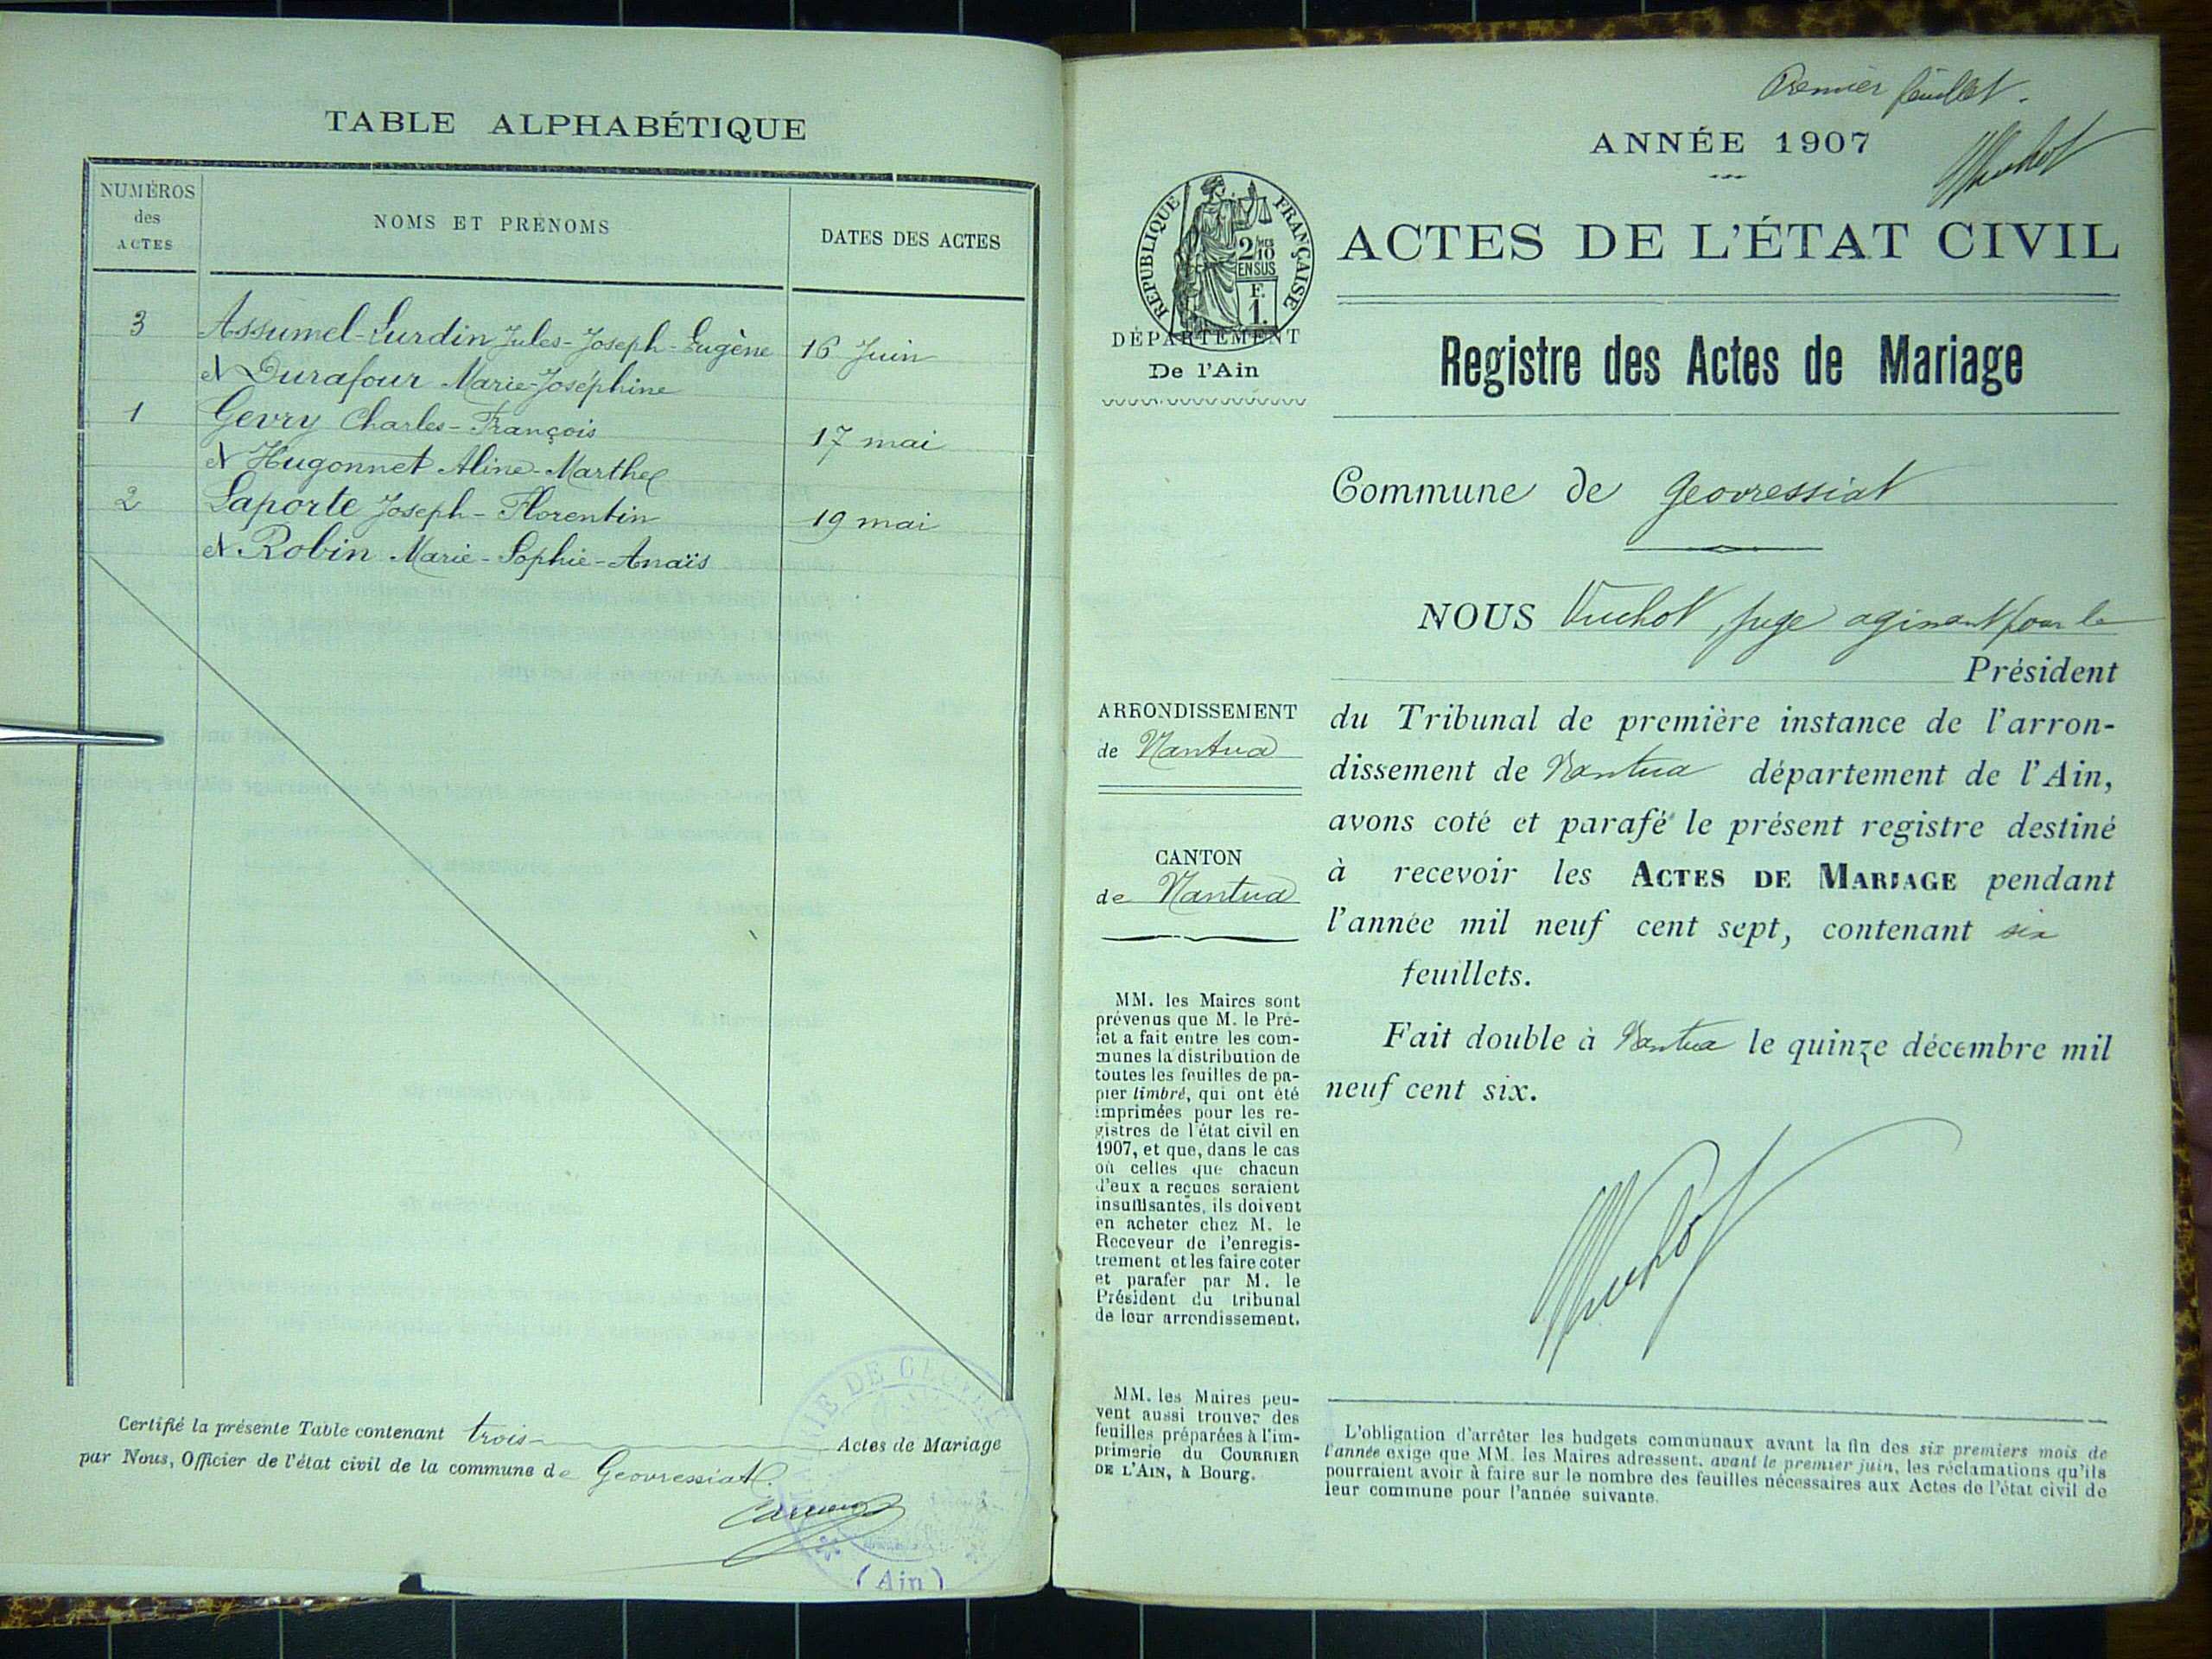 TABLE ALPHABÉTIQUE
NUMÉROS
des
ACTES
NOMS ET PRÉNOMS
DATES DES ACTES
3 Assumel-Lurdin Jules-Joseph-Eugène 16 Juin
et Durafour Marie-Joséphine
1 Gevry Charles-François 17 mai
et Hugonnet Aline-Marthe
2 Laporte Joseph-Florentin 19 mai
et Robin Marie-Sophie-Anaïs
Certifié la présente Table contenant trois Actes de Mariage
par Nous, Officier de l'état civil de la commune de Geovressiat.
(Ain)
Premier feuillet.
ANNÉE 1907
RÉPUBLIQUE FRANÇAISE
2/10
EN SUS
F.
1.
ACTES DE L'ÉTAT CIVIL
DÉPARTEMENT
De l'Ain
Registre des Actes de Mariage
Commune de Geovressiat
NOUS Vuchot, juge agissant pour le
Président
ARRONDISSEMENT
de Nantua
CANTON
de Nantua
du Tribunal de première instance de l'arron-
dissement de Nantua département de l'Ain,
avons coté et parafé le présent registre destiné
à recevoir les ACTES DE MARIAGE pendant
l'année mil neuf cent sept, contenant six
feuillets.
Fait double à Nantua le quinze décembre mil
neuf cent six.
MM. les Maires sont
prévenus que M. le Pré-
fet a fait entre les com-
munes la distribution de
toutes les feuilles de pa-
pier timbré, qui ont été
imprimées pour les re-
gistres de l'état civil en
1907, et que, dans le cas
où celles que chacun
d'eux a reçues seraient
insuffisantes, ils doivent
en acheter chez M. le
Receveur de l'enregis-
trement et les faire coter
et parafer par M. le
Président du tribunal
de leur arrondissement.
MM. les Maires peu-
vent aussi trouver des
feuilles préparées à l'im-
primerie du COURRIER
DE L'AIN, à Bourg.
L'obligation d'arrêter les budgets communaux avant la fin des six premiers mois de
l'année exige que MM. les Maires adressent, avant le premier juin, les réclamations qu'ils
pourraient avoir à faire sur le nombre des feuilles nécessaires aux Actes de l'état civil de
leur commune pour l'année suivante.